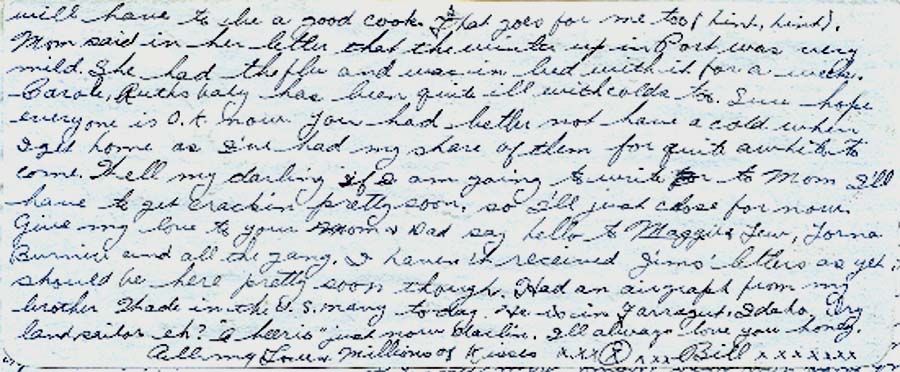 will have to be a good cook. That goes for me too (hint, hint).
Mom said in her letter that the winter up in Port was very
mild. She had the flu and was in bed with it for a week.
Carole, Ruths baby has been quite ill with colds to. Sure hope
everyone is O.K. now. You had better not have a cold when
I get home as I've had my share of them for quite awhile to
come. Well my darling if I am going to write to Mom I'll
have to get crackin pretty soon. so I'll just close for now.
Give my love to your Mom & Dad say hello to Maggie & Lew, Lorna
Burnice and all the gang. I haven't received Jims' letters as yet
should be here pretty soon though. Had an airgraph from my
brother Thade in the U.S. navy to-day. He is in Farragut, Idaho, Dry
land sailor eh? "Cheerio" just now darlin. I'll always love you honey.
All my Love & Millions of Kisses xxx(x)xxx Bill xxxxxxx